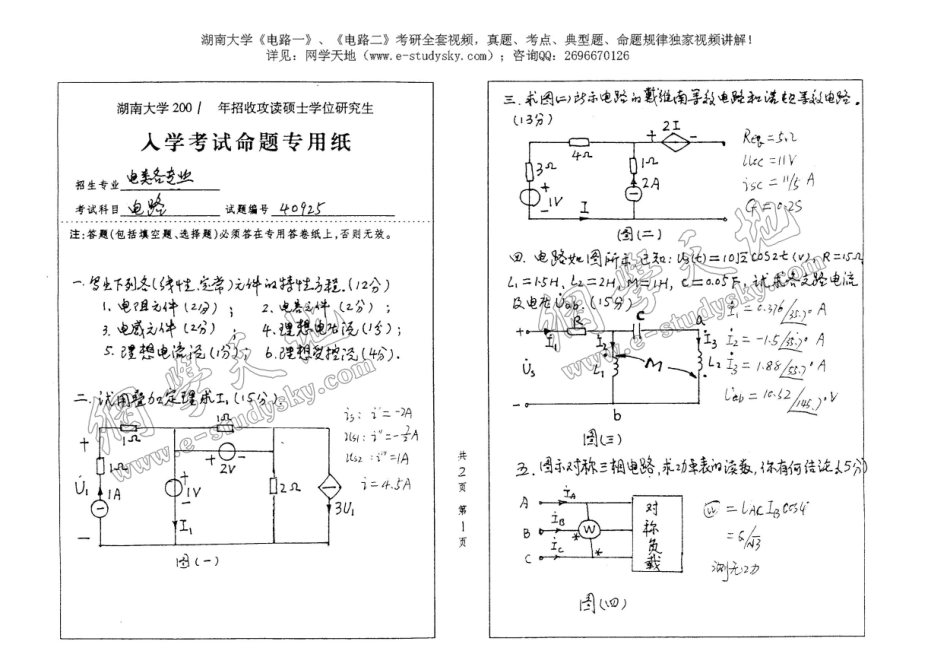 湖南大学《电路一》、《电路二》考研全套视频，真题、考点、典型题、命题规律独家视频讲解！
详见：网学天地（www.e-studysky.com）；咨询QQ：2696670126
湖南大学 2001 年招收攻读硕士学位研究生
入学考试命题专用纸
招生专业 电类各专业
考试科目 电路 试题编号 40925
注：答题(包括填空题、选择题)必须答在专用答卷纸上，否则无效。
一.写出下列各(线性.定常)元件的特性方程.(12分)
1.电阻元件(2分)； 2.电容元件(2分)；
3.电感元件(2分)； 4.理想电压源(1分)；
5.理想电流源(1分)； 6.理想受控源(4分).
二.试用叠加定理求I₁(15分).
+
1Ω
1Ω
1Ω
U̇₁
1A
−
1V
I₁
+ −
2V
2Ω
3U₁
图(一)
is: i'=-2A
us2: i'''=1A
i=4.5A
共 2 页 第 1 页
三.求图(二)所示电路的戴维南等效电路和诺顿等效电路.
(13分)
4Ω
3Ω
+
1V
I
1Ω
2A
+ 2I −
图(二)
Req=5Ω
uoc=11V
isc=11/5 A
四.电路如图所示,已知: us(t)=10√2cos2t(v), R=15Ω
L₁=1.5H, L₂=2H, M=1H, C=0.05F,试求各支路电流
及电压U̇ab.(15分)
+
İ₁
R
C
a
İ₂
İ₃
U̇s
L₁
M
L₂
−
b
图(三)
İ₃=1.88/55.7° A
五.图示对称三相电路,求功率表的读数,你有何结论(15分)
A
İA
B
İB
C
İC
W
*
*
对称负载
图(四)
测无功
網学天地
www.e-studysky.com
網学天地
www.e-studysky.com